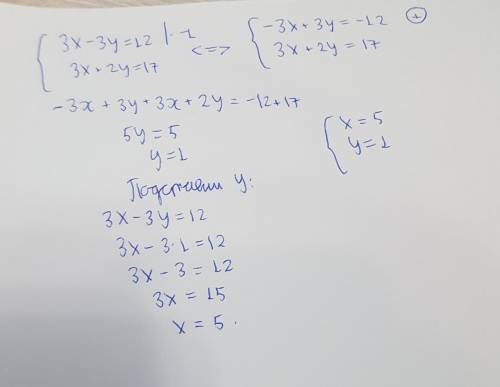 { 3x-3y=12 |·-1 <=> { -3x+3y=-12 (+)
3x+2y=17 3x+2y=17
-3x+3y+3x+2y=-12+17
5y=5
y=1
{ x=5
y=1
Подставим y:
3x-3y=12
3x-3·1=12
3x-3=12
3x=15
x=5.